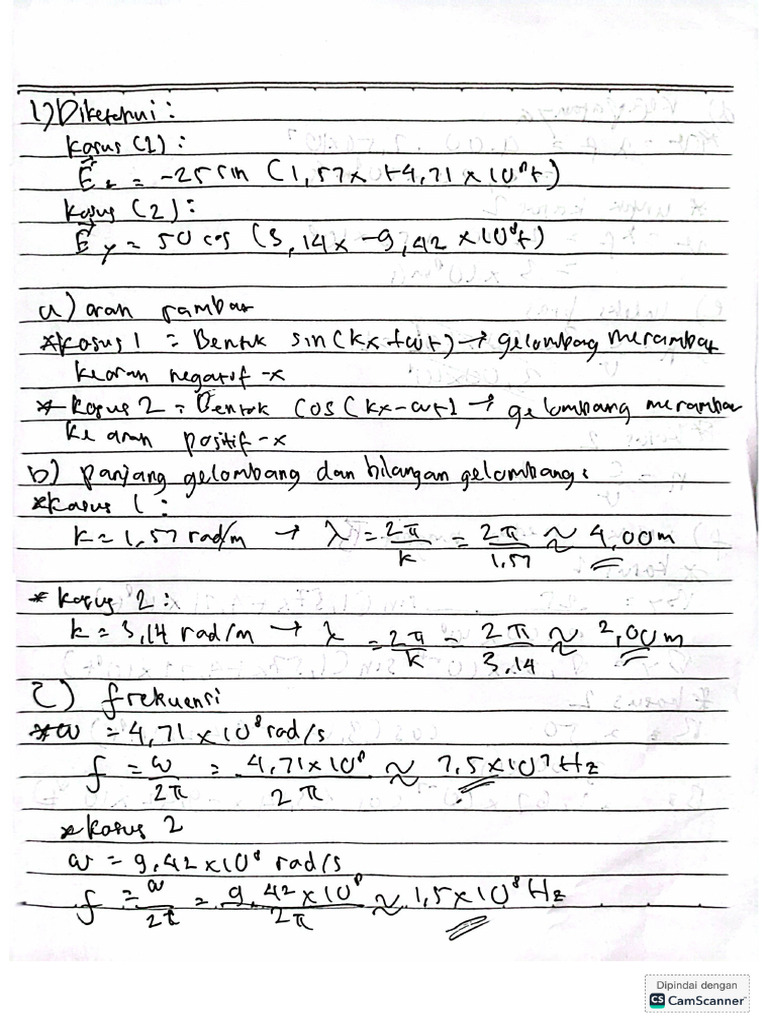 1) Diketahui :
Kasus (1) :
E⃗z = -25 sin (1,57x + 4,71 x 10⁸t)
Kasus (2) :
E⃗y = 50 cos (3,14x - 9,42 x 10⁸t)
a) arah rambat
*Kasus 1 = Bentuk sin(kx + ωt) → gelombang merambat
kearah negatif -x
*Kasus 2 = Bentuk cos(kx - ωt) → gelombang merambat
ke arah positif -x
b) panjang gelombang dan bilangan gelombang :
*Kasus 1 :
k = 1,57 rad/m → λ = 2π/k = 2π/1,57 ≈ 4,00 m
* Kasus 2 :
k = 3,14 rad/m → λ = 2π/k = 2π/3,14 ≈ 2,00 m
c) frekuensi
*ω = 4,71 x 10⁸ rad/s
f = ω/2π = 4,71 x 10⁸/2π ≈ 7,5 x 10⁷ Hz
*Kasus 2
ω = 9,42 x 10⁸ rad/s
f = ω/2π = 9,42 x 10⁸/2π ≈ 1,5 x 10⁸ Hz
Dipindai dengan
CS CamScanner